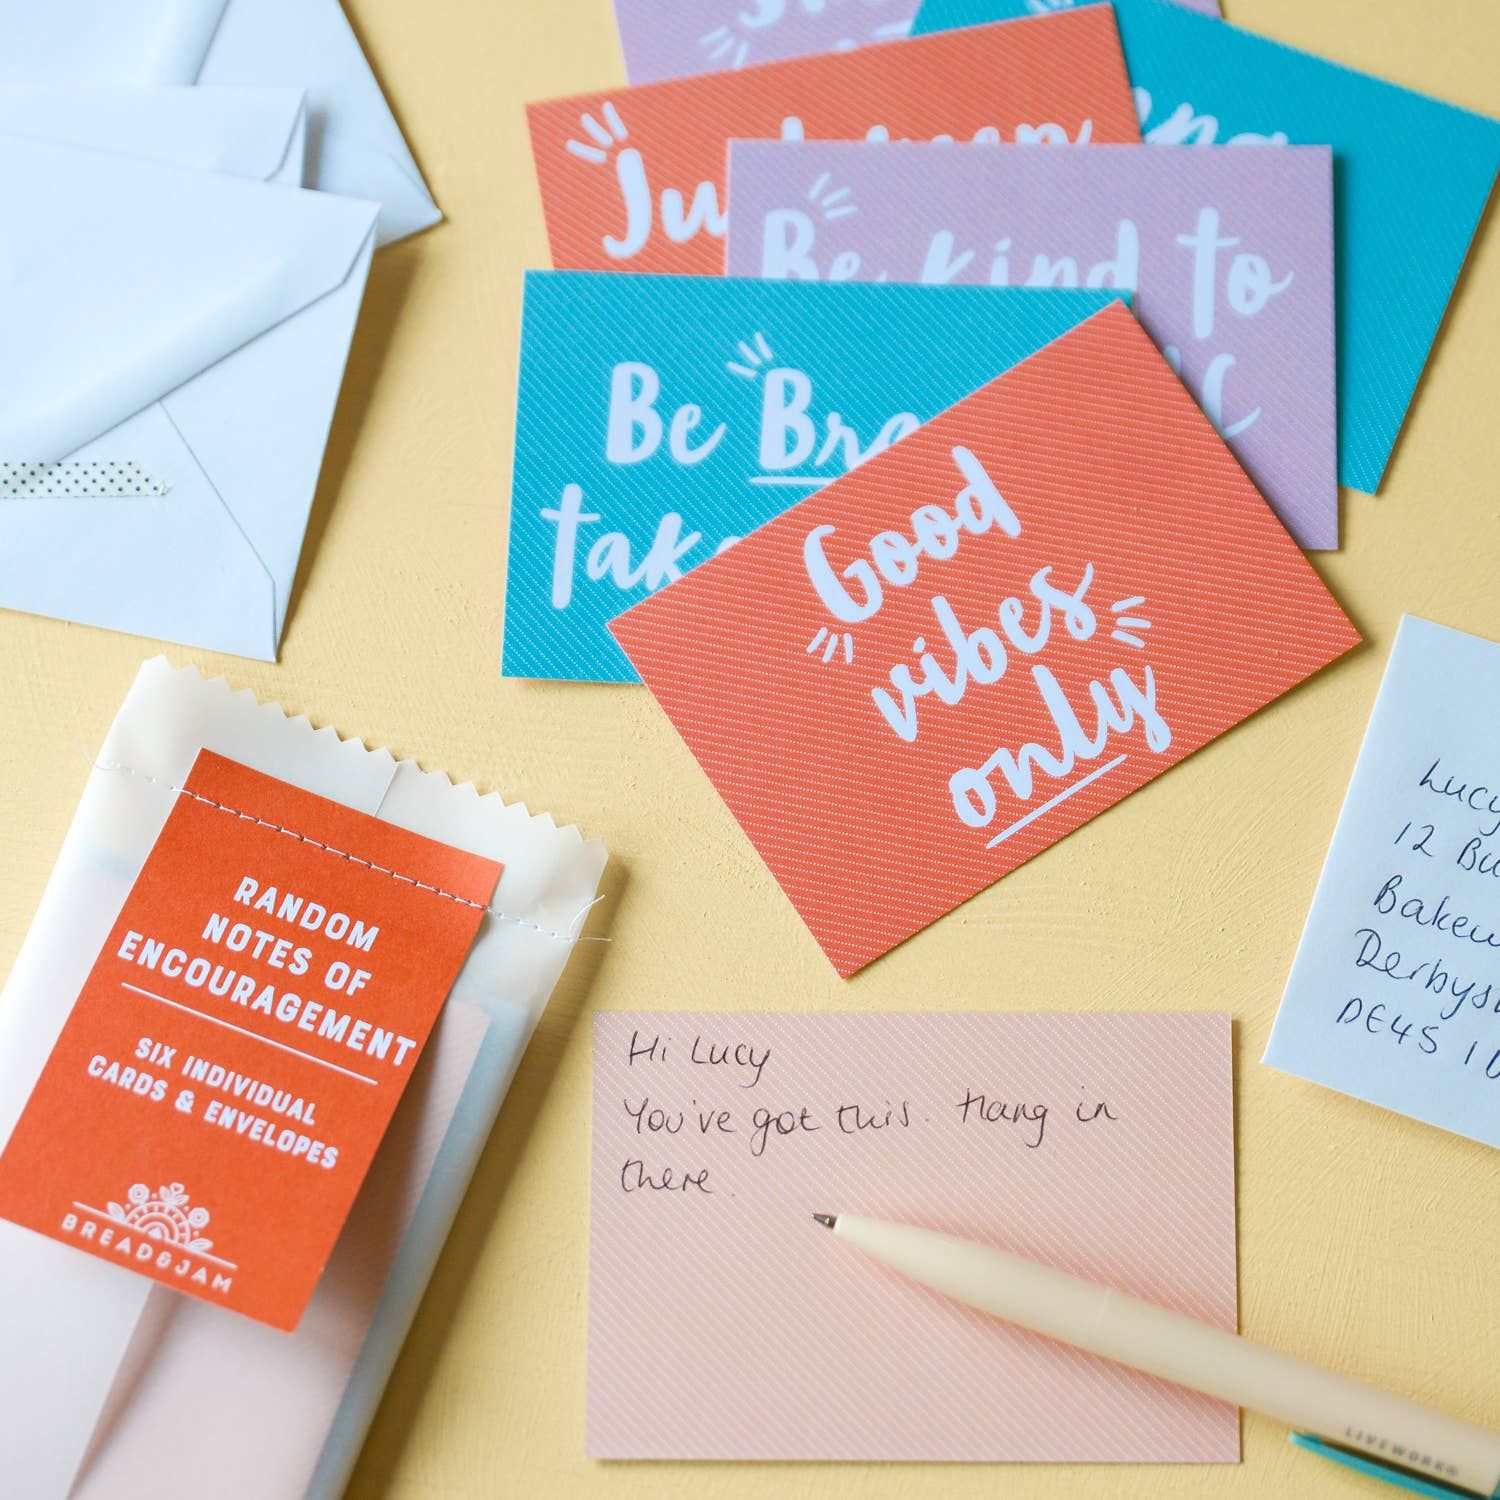 Be kind to
Be
take
Good
vibes
only
RANDOM
NOTES OF
ENCOURAGEMENT
SIX INDIVIDUAL
CARDS & ENVELOPES
BREAD&JAM
Hi Lucy
You've got this. Hang in
there.
Lucy
12
Derbys
DE45 1
LIVEWORK®